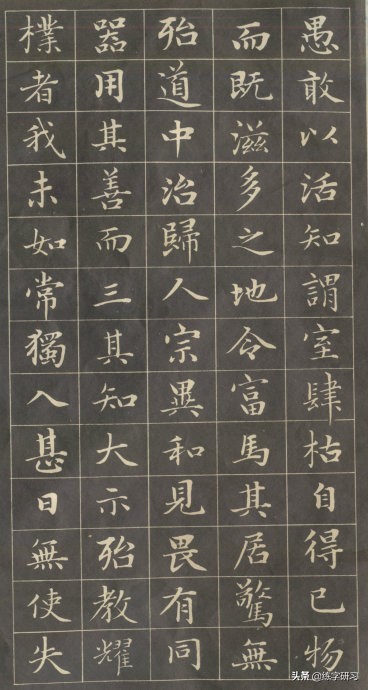 愚敢以活知謂室肆枯自得已物
而既滋多之地令富馬其居驚無
殆道中治歸人宗異和見畏有同
器用其善而三其知大示殆教耀
樸者我未如常獨入甚日無使失
头条@练字研习